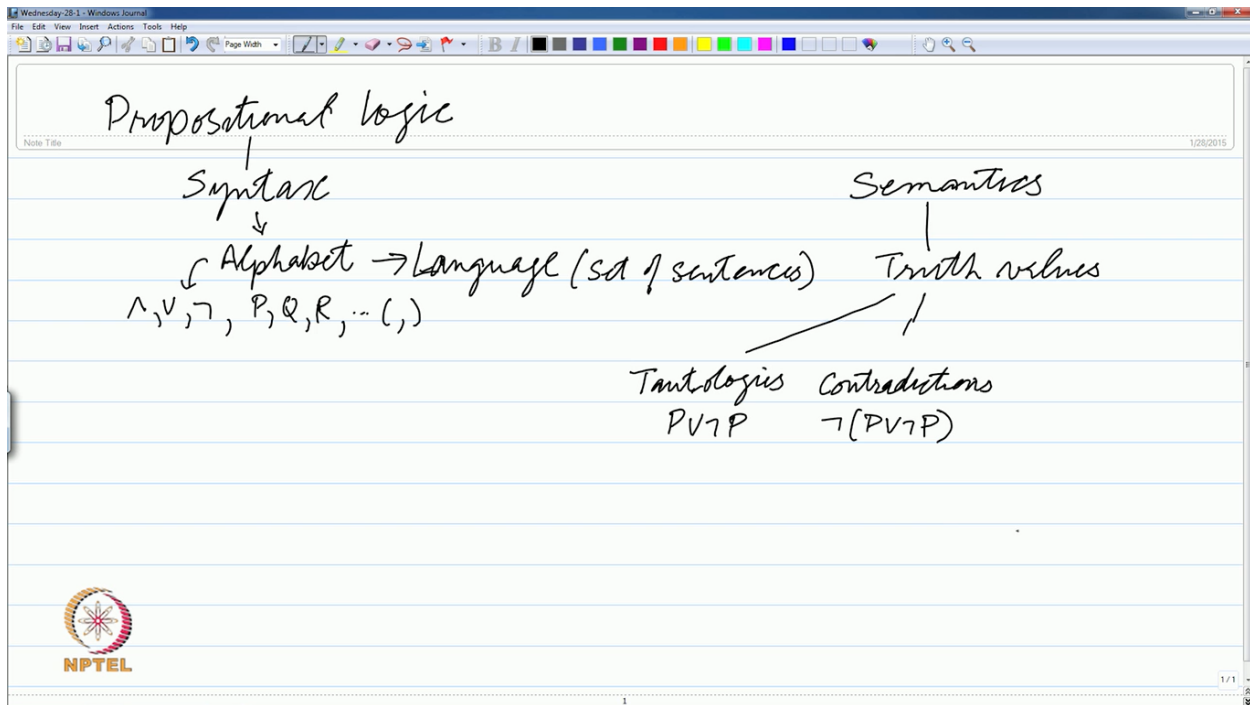 Wednesday-28-1 - Windows Journal
File Edit View Insert Actions Tools Help
Page Width B I
Propositional logic
Note Title 1/28/2015
Syntax Semantics
Alphabet → Language (set of sentences) Truth values
∧, ∨, ¬, P, Q, R, ... (, )
Tautologies Contradictions
P∨¬P ¬(P∨¬P)
NPTEL
1/1
1